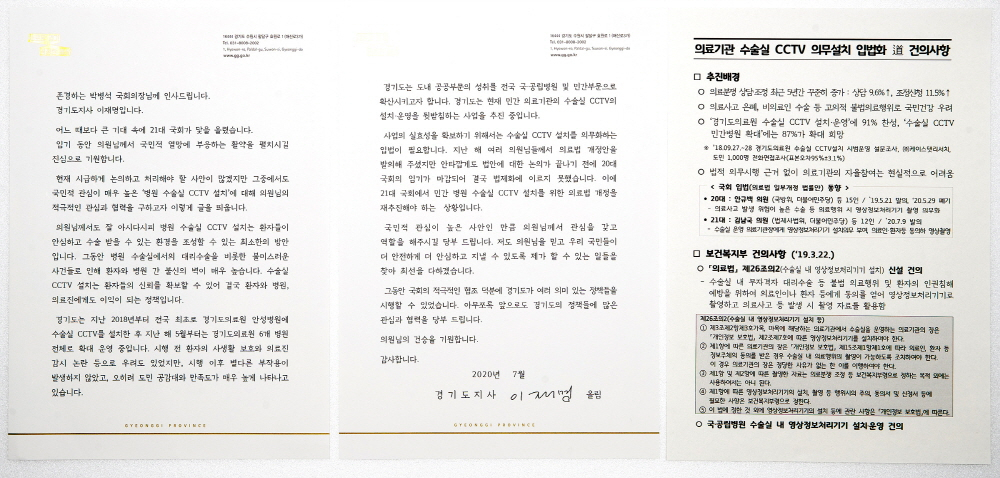 16444 경기도 수원시 팔달구 효원로 1 (매산로3가)
Tel. 031-8008-2002
1, Hyowon-ro, Paldal-gu, Suwon-si, Gyeonggi-do
www.gg.go.kr
존경하는 박병석 국회의장님께 인사드립니다.
경기도지사 이재명입니다.
어느 때보다 큰 기대 속에 21대 국회가 닻을 올렸습니다.
임기 동안 의원님께서 국민적 열망에 부응하는 활약을 펼치시길
진심으로 기원합니다.
현재 시급하게 논의하고 처리해야 할 사안이 많겠지만 그중에서도
국민적 관심이 매우 높은 '병원 수술실 CCTV 설치'에 대해 의원님의
적극적인 관심과 협력을 구하고자 이렇게 글을 띄웁니다.
의원님께서도 잘 아시다시피 병원 수술실 CCTV 설치는 환자들이
안심하고 수술 받을 수 있는 환경을 조성할 수 있는 최소한의 방안
입니다. 그동안 병원 수술실에서의 대리수술을 비롯한 불미스러운
사건들로 인해 환자와 병원 간 불신의 벽이 매우 높습니다. 수술실
CCTV 설치는 환자들의 신뢰를 확보할 수 있어 결국 환자와 병원,
의료진에게도 이익이 되는 정책입니다.
경기도는 지난 2018년부터 전국 최초로 경기도의료원 안성병원에
수술실 CCTV를 설치한 후 지난 해 5월부터는 경기도의료원 6개 병원
전체로 확대 운영 중입니다. 시행 전 환자의 사생활 보호와 의료진
감시 논란 등으로 우려도 있었지만, 시행 이후 별다른 부작용이
발생하지 않았고, 오히려 도민 공감대와 만족도가 매우 높게 나타나고
있습니다.
GYEONGGI PROVINCE
16444 경기도 수원시 팔달구 효원로 1 (매산로3가)
Tel. 031-8008-2002
1, Hyowon-ro, Paldal-gu, Suwon-si, Gyeonggi-do
www.gg.go.kr
경기도는 도내 공공부문의 성취를 전국 국·공립병원 및 민간부문으로
확산시키고자 합니다. 경기도는 현재 민간 의료기관의 수술실 CCTV의
설치·운영을 뒷받침하는 사업을 추진 중입니다.
사업의 실효성을 확보하기 위해서는 수술실 CCTV 설치를 의무화하는
입법이 필요합니다. 지난 해 여러 의원님들께서 의료법 개정안을
발의해 주셨지만 안타깝게도 법안에 대한 논의가 끝나기 전에 20대
국회의 임기가 마감되어 결국 법제화에 이르지 못했습니다. 이에
21대 국회에서 민간 병원 수술실 CCTV 설치를 위한 의료법 개정을
재추진해야 하는 상황입니다.
국민적 관심이 높은 사안인 만큼 의원님께서 관심을 갖고
역할을 해주시길 당부 드립니다. 저도 의원님을 믿고 우리 국민들이
더 안전하게 더 안심하고 지낼 수 있도록 제가 할 수 있는 일들을
찾아 최선을 다하겠습니다.
그동안 국회의 적극적인 협조 덕분에 경기도가 여러 의미 있는 정책들을
시행할 수 있었습니다. 아무쪼록 앞으로도 경기도의 정책들에 많은
관심과 협력을 당부 드립니다.
의원님의 건승을 기원합니다.
감사합니다.
2020년 7월
경기도지사 이재명 올림
GYEONGGI PROVINCE
의료기관 수술실 CCTV 의무설치 입법화 道 건의사항
□ 추진배경
○ 의료분쟁 상담·조정 최근 5년간 꾸준히 증가 : 상담 9.6%↑, 조정신청 11.5%↑
○ 의료사고 은폐, 비의료인 수술 등 고의적 불법의료행위로 국민건강 우려
○ '경기도의료원 수술실 CCTV 설치·운영'에 91% 찬성, '수술실 CCTV
민간병원 확대'에는 87%가 확대 희망
※ '18.09.27.~28 경기도의료원 수술실 CCTV설치 시범운영 설문조사, ㈜케이스탯리서치,
도민 1,000명 전화면접조사(표본오차95%±3.1%)
○ 법적 의무시행 근거 없이 의료기관의 자율참여는 현실적으로 어려움
< 국회 입법(의료법 일부개정 법률안) 동향 >
• 20대 : 안규백 의원 (국방위, 더불어민주당) 등 15인 / '19.5.21 발의, '20.5.29 폐기
- 의료사고 발생 위험이 높은 수술 등 의료행위 시 영상정보처리기기 촬영 의무화
• 21대 : 김남국 의원 (법제사법위, 더불어민주당) 등 12인 / '20.7.9 발의
- 수술실 운영 의료기관장에게 영상정보처리기기 설치의무 부여, 의료인·환자등 동의하 영상촬영
□ 보건복지부 건의사항 ('19.3.22.)
○ 「의료법」 제26조의2(수술실 내 영상정보처리기기 설치) 신설 건의
- 수술실 내 무자격자 대리수술 등 불법 의료행위 및 환자의 인권침해
예방을 위하여 의료인이나 환자 등에게 동의를 얻어 영상정보처리기기로
촬영하고 의료사고 등 발생 시 촬영 자료를 활용함
제26조의2(수술실 내 영상정보처리기기 설치 등)
① 제3조제2항제3호가목, 마목에 해당하는 의료기관에서 수술실을 운영하는 의료기관의 장은
「개인정보 보호법」 제2조제7호에 따른 영상정보처리기기를 설치하여야 한다.
② 제1항에 따른 의료기관의 장은 「개인정보 보호법」 제15조제1항제1호에 따라 의료인, 환자 등
정보주체의 동의를 받은 경우 수술실 내 의료행위의 촬영이 가능하도록 조치하여야 한다.
이 경우 의료기관의 장은 정당한 사유가 없는 한 이를 이행하여야 한다.
③ 제1항 및 제2항에 따른 촬영한 자료는 의료분쟁 조정 등 보건복지부령으로 정하는 목적 외에는
사용하여서는 아니 된다.
④ 제1항에 따른 영상정보처리기기의 설치, 촬영 등 행위시의 주의, 동의서 및 신청서 등에
필요한 사항은 보건복지부령으로 정한다.
⑤ 이 법에 정한 것 외에 영상정보처리기기의 설치 등에 관한 사항은 「개인정보 보호법」에 따른다.
○ 국·공립병원 수술실 내 영상정보처리기기 설치·운영 건의